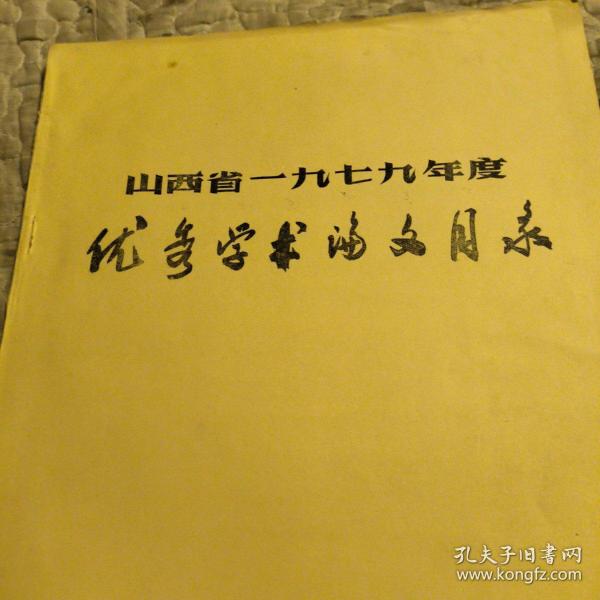 山西省一九七九年度
优秀学术论文目录
孔夫子旧书网
www.kongfz.com